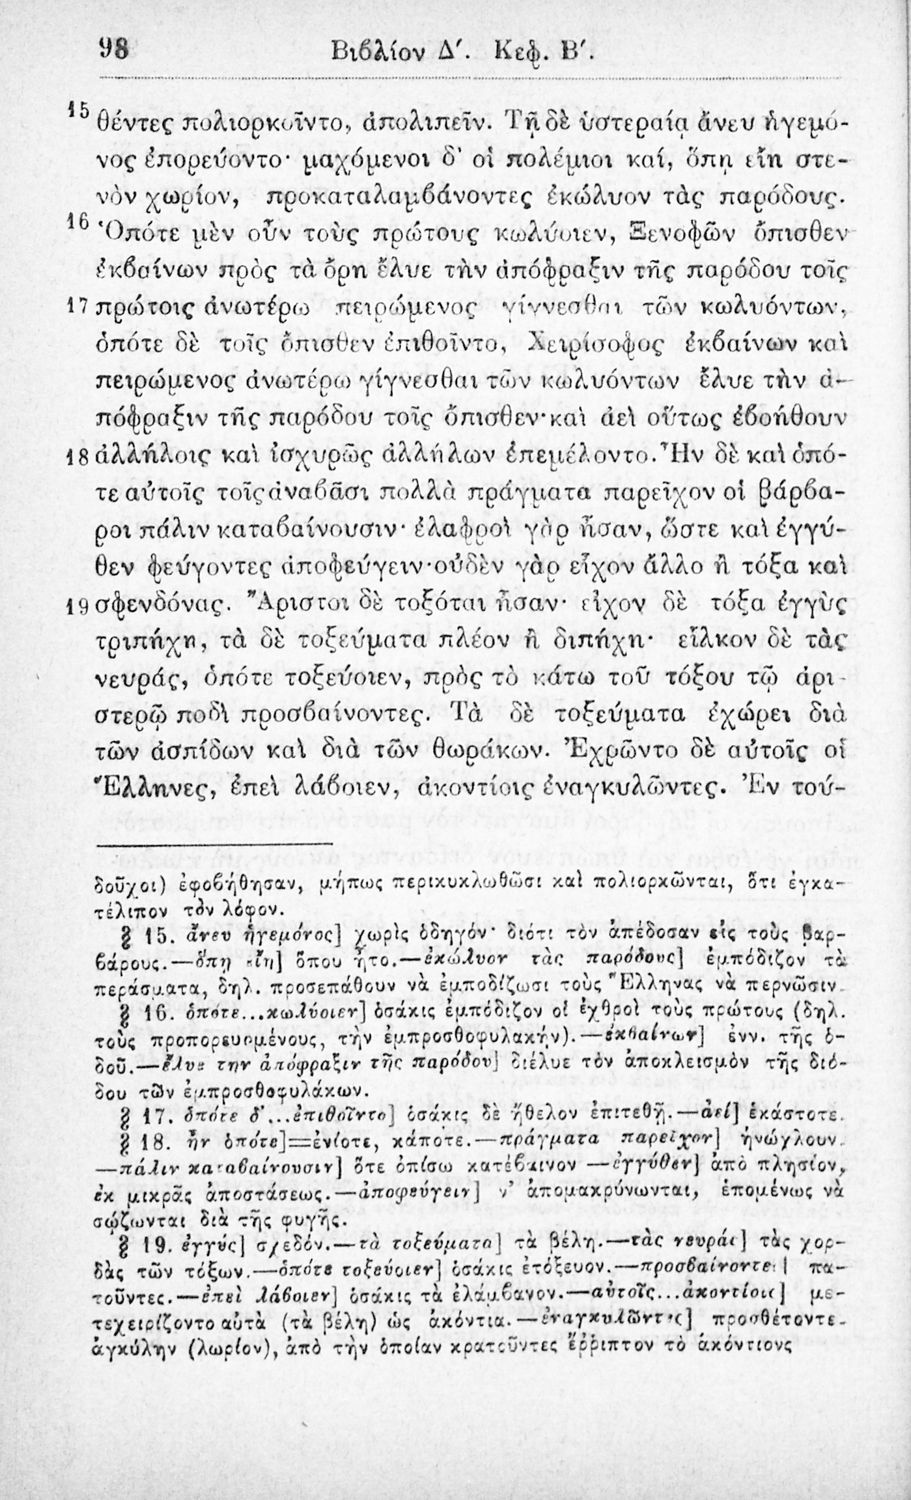 98 Βιβλίον Δ΄. Κεφ. Β΄.
15 θέντες πολιορκοῖντο, ἀπολιπεῖν. Τῇ δὲ ὑστεραίᾳ ἄνευ ἡγεμό-
νος ἐπορεύοντο· μαχόμενοι δ' οἱ πολέμιοι καί, ὅπῃ εἴη στε-
νὸν χωρίον, προκαταλαμβάνοντες ἐκώλυον τὰς παρόδους.
16 Ὁπότε μὲν οὖν τοὺς πρώτους κωλύοιεν, Ξενοφῶν ὄπισθεν
ἐκβαίνων πρὸς τὰ ὄρη ἔλυε τὴν ἀπόφραξιν τῆς παρόδου τοῖς
17 πρώτοις ἀνωτέρω πειρώμενος γίγνεσθαι τῶν κωλυόντων,
ὁπότε δὲ τοῖς ὄπισθεν ἐπιθοῖντο, Χειρίσοφος ἐκβαίνων καὶ
πειρώμενος ἀνωτέρω γίγνεσθαι τῶν κωλυόντων ἔλυε τὴν ἀ-
πόφραξιν τῆς παρόδου τοῖς ὄπισθεν· καὶ ἀεὶ οὕτως ἐβοήθουν
18 ἀλλήλοις καὶ ἰσχυρῶς ἀλλήλων ἐπεμέλοντο. Ἦν δὲ καὶ ὁπό-
τε αὐτοῖς τοῖς ἀναβᾶσι πολλὰ πράγματα παρεῖχον οἱ βάρβα-
ροι πάλιν καταβαίνουσιν· ἐλαφροὶ γὰρ ἦσαν, ὥστε καὶ ἐγγύ-
θεν φεύγοντες ἀποφεύγειν· οὐδὲν γὰρ εἶχον ἄλλο ἢ τόξα καὶ
19 σφενδόνας. Ἄριστοι δὲ τοξόται ἦσαν· εἶχον δὲ τόξα ἐγγὺς
τριπήχη, τὰ δὲ τοξεύματα πλέον ἢ διπήχη· εἷλκον δὲ τὰς
νευράς, ὁπότε τοξεύοιεν, πρὸς τὸ κάτω τοῦ τόξου τῷ ἀρι-
στερῷ ποδὶ προσβαίνοντες. Τὰ δὲ τοξεύματα ἐχώρει διὰ
τῶν ἀσπίδων καὶ διὰ τῶν θωράκων. Ἐχρῶντο δὲ αὐτοῖς οἱ
Ἕλληνες, ἐπεὶ λάβοιεν, ἀκοντίοις ἐναγκυλῶντες. Ἐν τού-
δοῦχοι) ἐφοβήθησαν, μήπως περικυκλωθῶσι καὶ πολιορκῶνται, ὅτι ἐγκα-
τέλιπον τὸν λόφον.
§ 15. ἄνευ ἡγεμόνος] χωρὶς ὁδηγόν· διότι τὸν ἀπέδοσαν εἰς τοὺς βαρ-
βάρους.—ὅπῃ εἴη] ὅπου ἦτο.—ἐκώλυον τὰς παρόδους] ἐμπόδιζον τὰ
περάσματα, δηλ. προσεπάθουν νὰ ἐμποδίζωσι τοὺς Ἕλληνας νὰ περνῶσιν.
§ 16. ὁπότε...κωλύοιεν] ὁσάκις ἐμπόδιζον οἱ ἐχθροὶ τοὺς πρώτους (δηλ.
τοὺς προπορευομένους, τὴν ἐμπροσθοφυλακήν).—ἐκβαίνων] ἐνν. τῆς ὁ-
δοῦ.—ἔλυε την ἀπόφραξιν τῆς παρόδου] διέλυε τὸν ἀποκλεισμὸν τῆς διό-
δου τῶν ἐμπροσθοφυλάκων.
§ 17. ὁπότε δ'...ἐπιθοῖντο] ὁσάκις δὲ ἤθελον ἐπιτεθῇ.—ἀεί] ἑκάστοτε.
§ 18. ἦν ὁπότε]=ἐνίοτε, κάποτε.—πράγματα παρεῖχον] ἠνώχλουν.
—πάλιν καταβαίνουσιν] ὅτε ὀπίσω κατέβαινον—ἐγγύθεν] ἀπὸ πλησίον,
ἐκ μικρᾶς ἀποστάσεως.—ἀποφεύγειν] ν' ἀπομακρύνωνται, ἑπομένως νὰ
σῴζωνται διὰ τῆς φυγῆς.
§ 19. ἐγγύς] σχεδόν.—τὰ τοξεύματα] τὰ βέλη.—τὰς νευράς] τὰς χορ-
δὰς τῶν τόξων.—ὁπότε τοξεύοιεν] ὁσάκις ἐτόξευον.—προσβαίνοντες] πα-
τοῦντες.—ἐπεὶ λάβοιεν] ὁσάκις τὰ ἐλάμβανον.—αὐτοῖς...ἀκοντίοις] με-
τεχειρίζοντο αὐτὰ (τὰ βέλη) ὡς ἀκόντια.—ἐναγκυλῶντες] προσθέτοντε-
ἀγκύλην (λωρίον), ἀπὸ τὴν ὁποίαν κρατοῦντες ἔρριπτον τὸ ἀκόντιονς